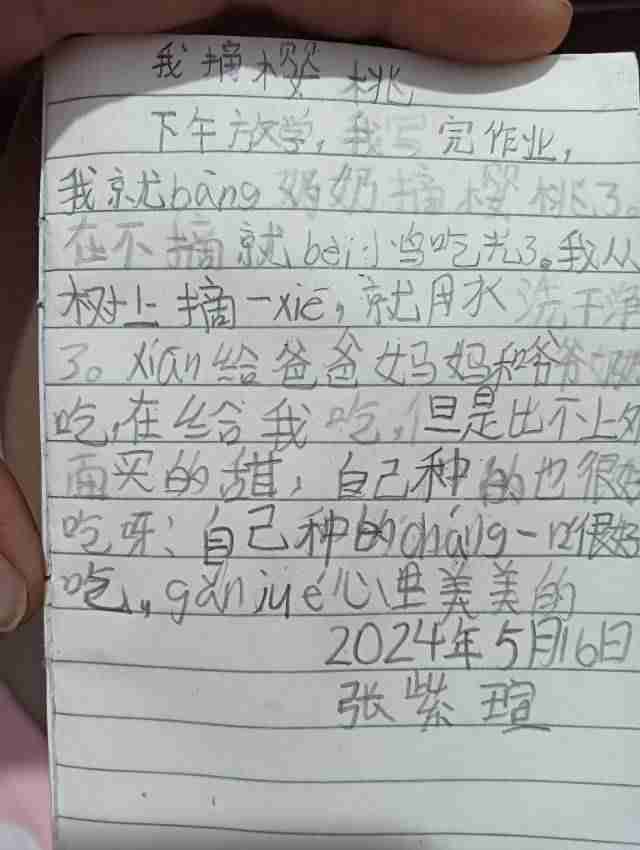 我摘樱桃
下午放学，我写完作业，
我就bāng奶奶摘樱桃了。
在不摘就bèi小鸟吃光了。我从
树上摘一xiē，就用水洗干净
了。xiān给爸爸妈妈和爷爷奶奶
吃，在给我吃，但是比不上外
面买的甜，自己种的也很好
吃呀；自己种的cháng一口很好
吃，gǎn jué心里美美的
2024年5月16日
张紫瑄